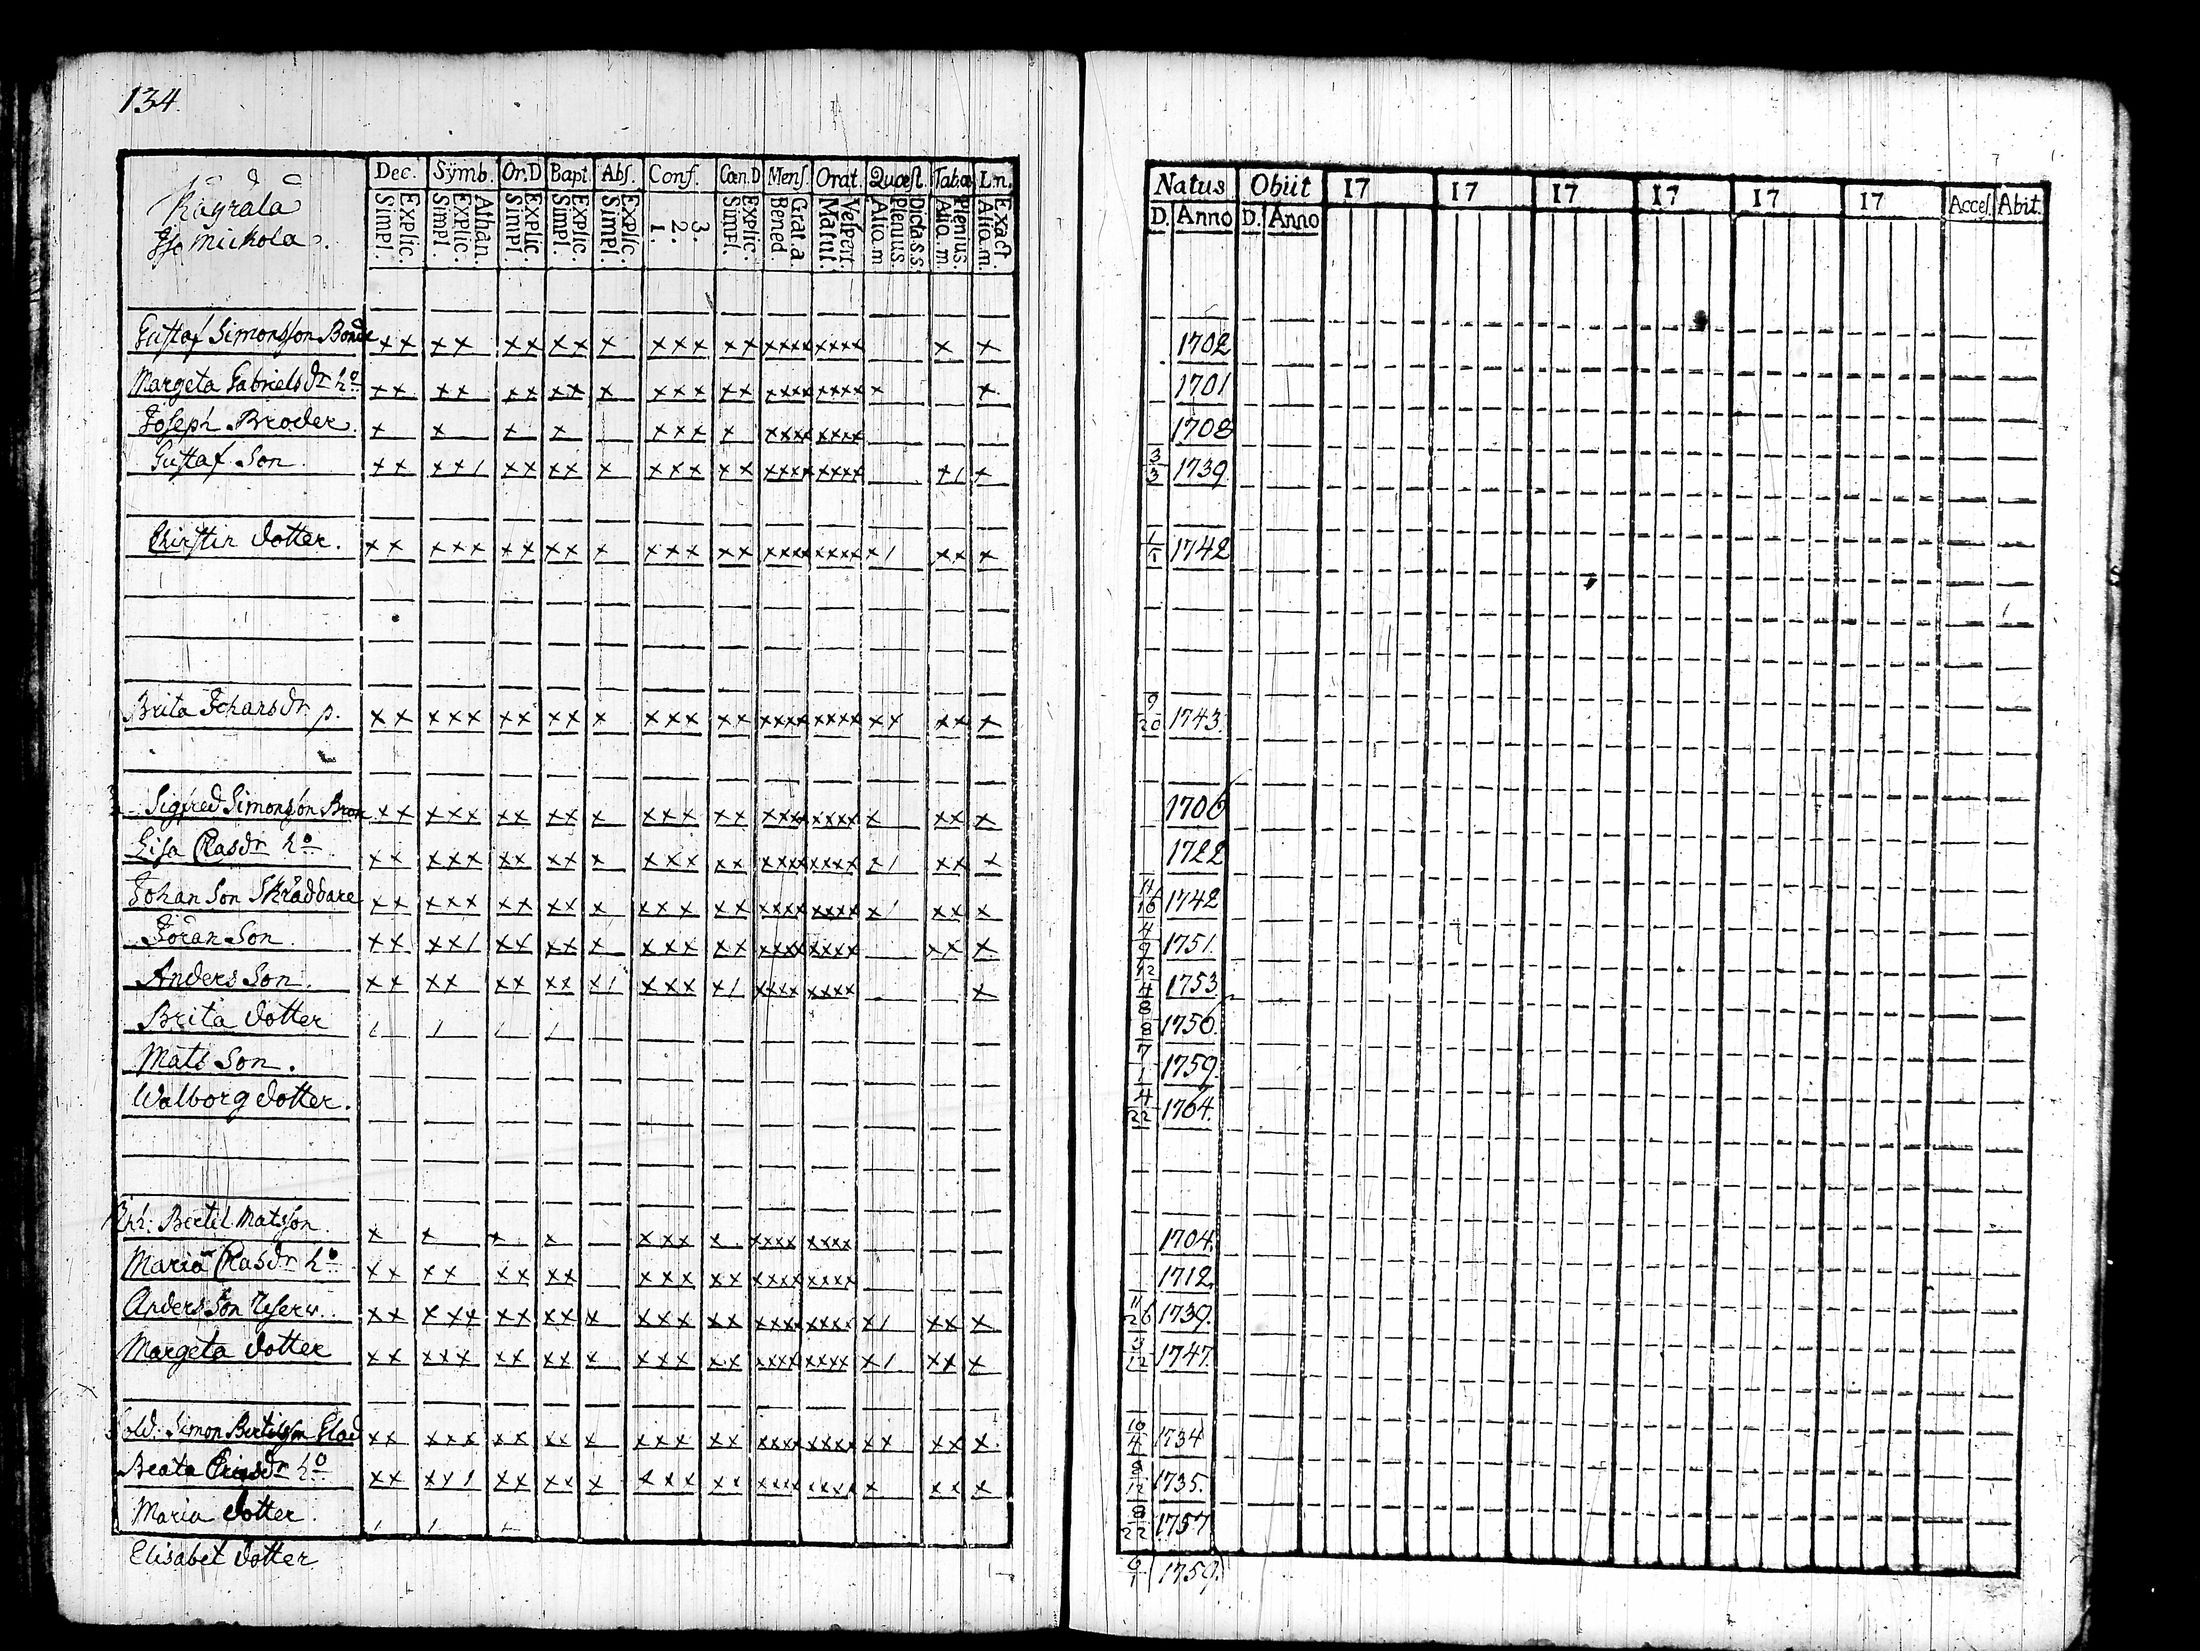 134.
Käyrälä
Iso Mickola.
Dec. Symb. Or.D Bapt. Abs. Conf. Cœn.D Mens. Orat. Quæst. Tabæ L.n.
Explic. Simpl. Athan. Explic. Simpl. Explic. Simpl. Explic. Simpl. Explic. Simpl. 3. 2. 1. Explic. Simpl. Grat.a. Bened. Vespert. Matut. Dicta s.s. Plenius. Aliq.m. Plenius. Aliq.m. Exact. Aliq.m.
Natus Obiit 17 17 17 17 17 17 Access. Abit.
D. Anno D. Anno
Gustaf Simonsson Bonde xx xx xx xx x xxx xx xxxx xxxx x x 1702
Margeta Gabrielsdr ho xx xx xx xx x xxx xx xxxx xxxx x x 1701
Joseph Broder. x x x x xxx x xxxx xxxx 1708
Gustaf Son. xx xx/ xx xx x xxx xx xxxx xxxx x/ x 3/3 1739
Chirstin dotter. xx xxx xx xx x xxx xx xxxx xxxx x/ xx x 1/1 1742
Brita Johansdr p. xx xxx xx xx x xxx xx xxxx xxxx xx xx x 9/20 1743.
Sigfred Simonsson Bror xx xxx xx xx x xxx xx xxxx xxxx x xx x 1706
Lisa Clasdr ho xx xxx xx xx x xxx xx xxxx xxxx x/ xx x 1722
Johan Son Skräddare xx xxx xx xx x xxx xx xxxx xxxx x/ xx x 11/16 1742
Jöran Son xx xx/ xx xx x xxx xx xxxx xxxx xx x 4/9 1751.
Anders Son. xx xx xx xx x/ xxx x/ xxxx xxxx x 12/4 1753
Brita dotter / / / / 8/8 1756.
Mats Son. 7/1 1759.
Walborg dotter. 4/22 1764.
Inh: Bertil Matsson. x x x x xxx x xxxx xxxx 1704.
Maria Clasdr ho xx xx xx xx xxx xx xxxx xxxx 1712.
Anders Son Reserv. xx xxx xx xx x xxx xx xxxx xxxx x/ xx x 11/26 1739.
Margeta dotter xx xxx xx xx x xxx xx xxxx xxxx x/ xx x 3/12 1747.
Sold: Simon Bertilsson Glad xx xxx xx xx x xxx xx xxxx xxxx xx xx x. 10/4 1734
Beata Ericsdr ho xx xx/ xx xx x xxx xx xxxx xxxx x xx x 2/12 1735.
Maria dotter. / / / 8/22 1757
Elisabet dotter 6/1 1759.